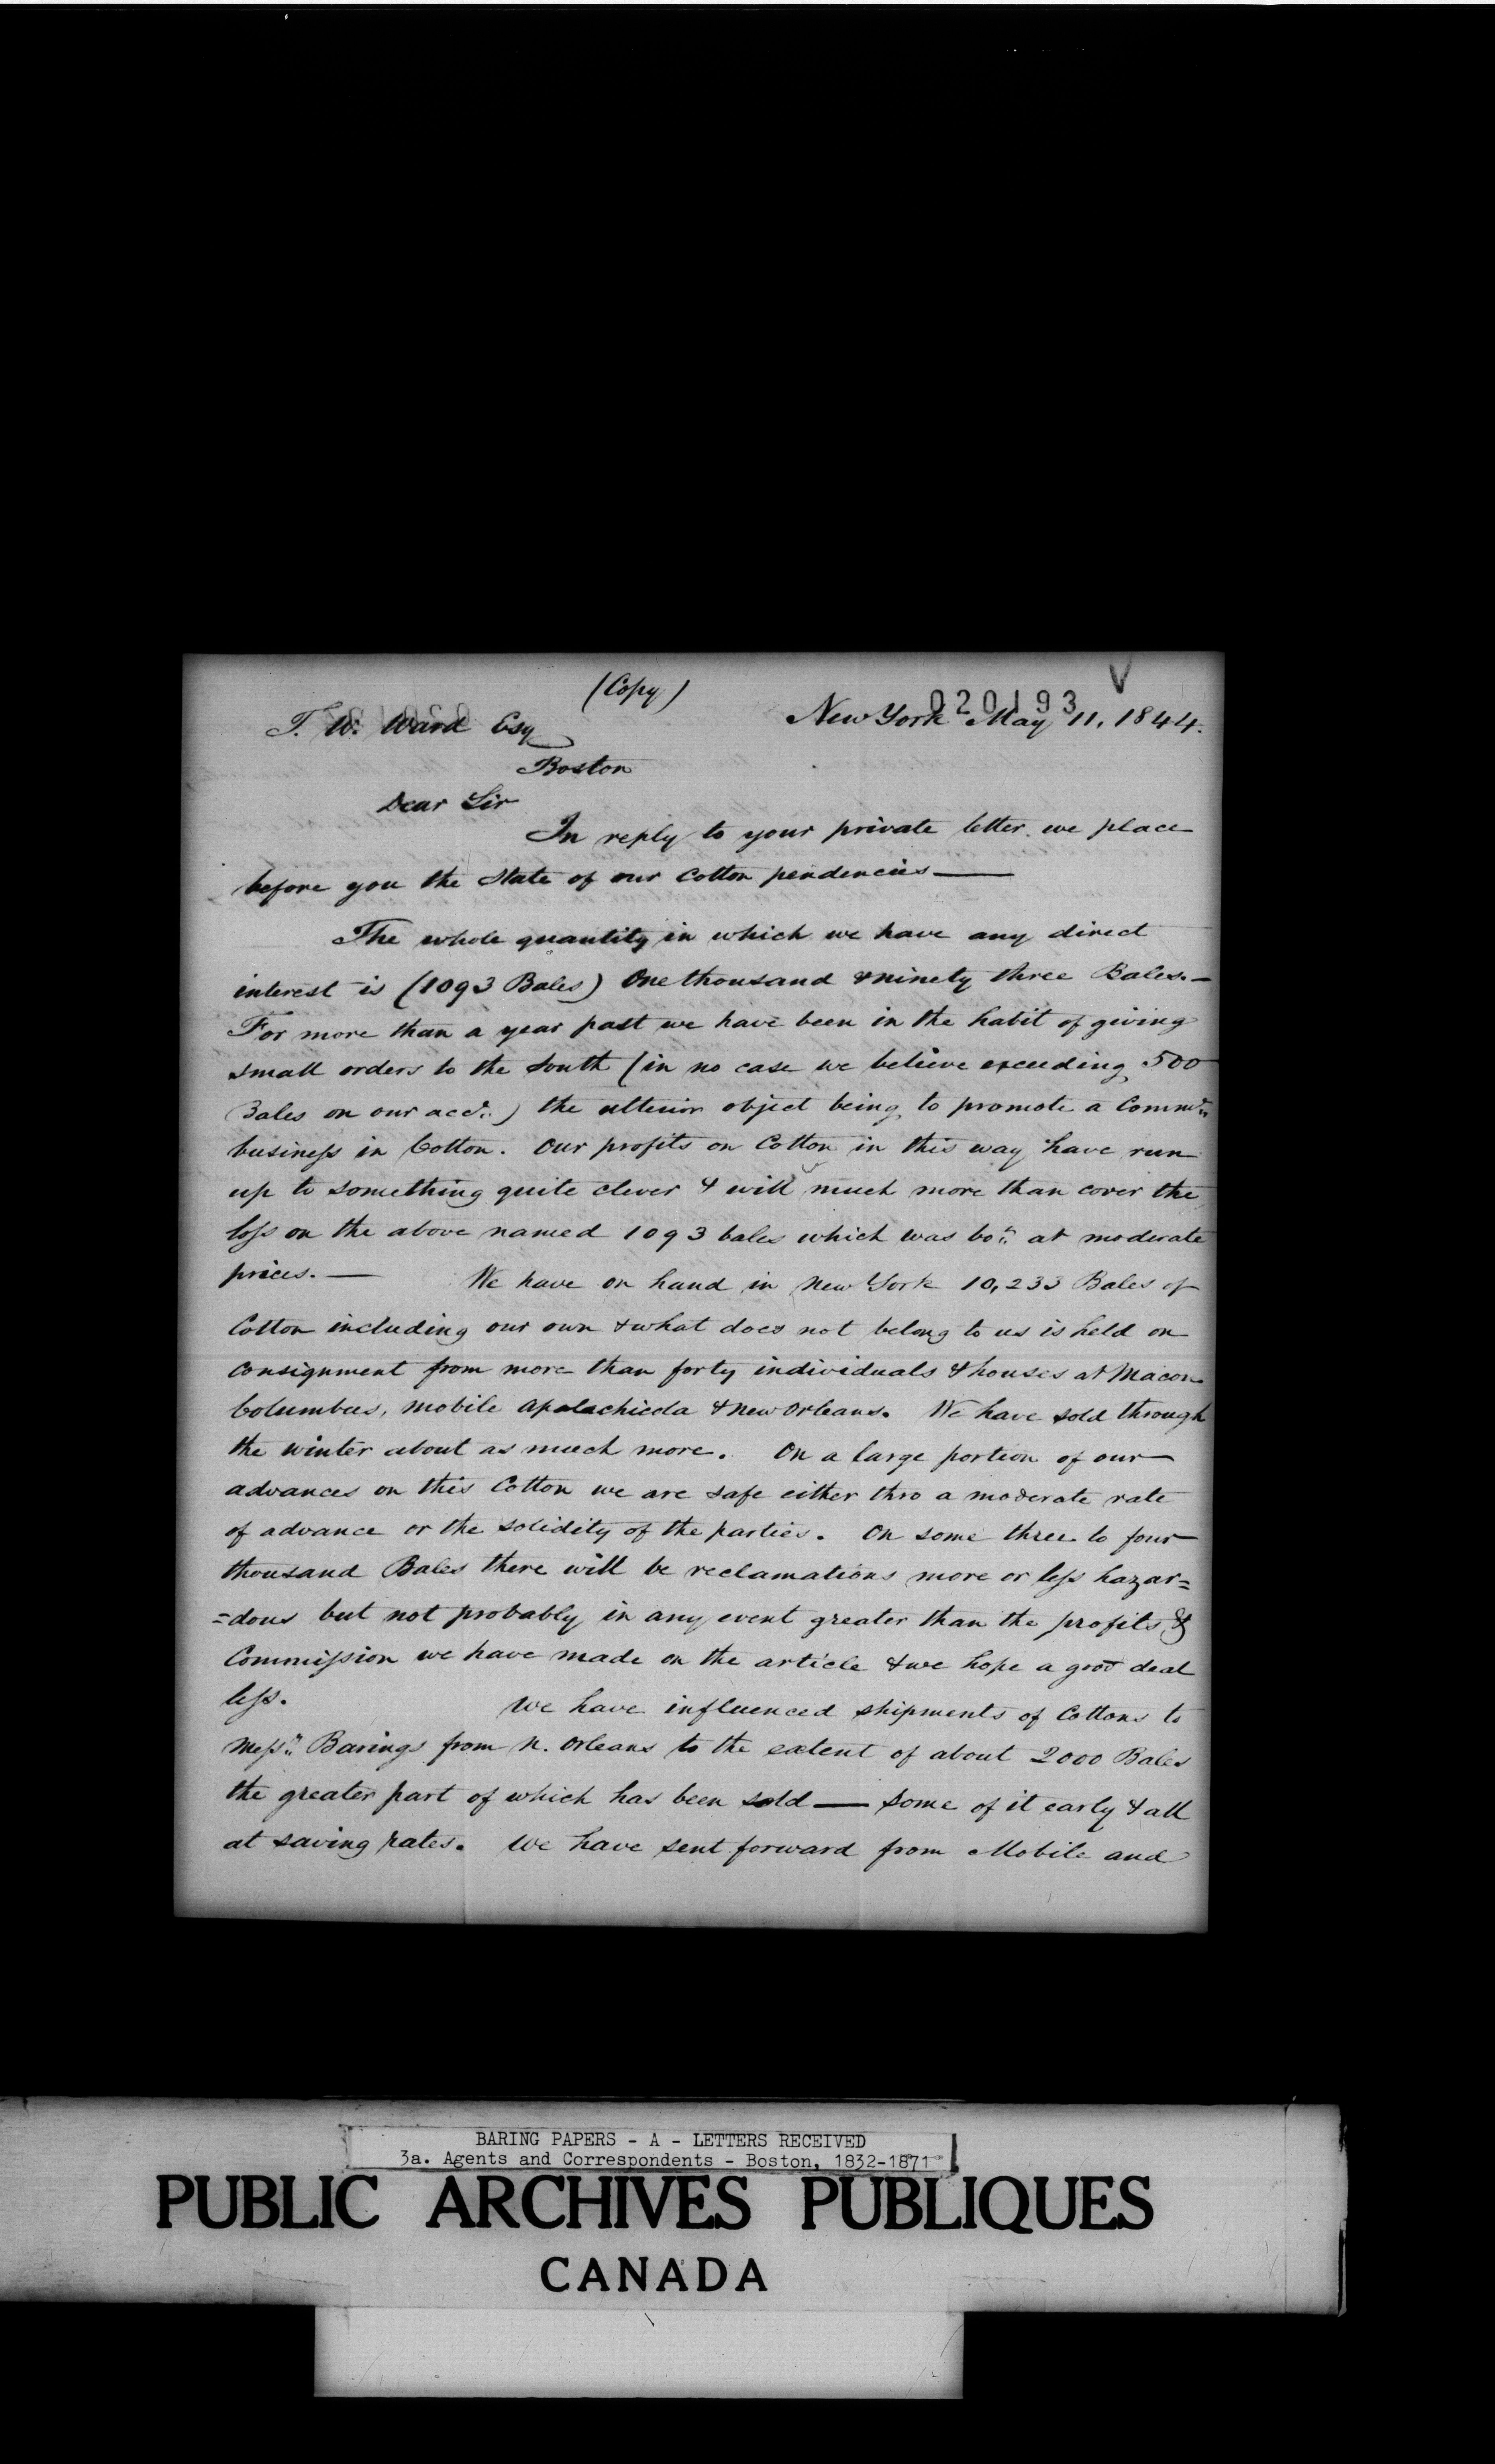 (Copy)
020193
T. W. Ward Esq New York May 11, 1844.
Boston
Dear Sir
In reply to your private letter we place
before you the state of our Cotton pendencies —
The whole quantity in which we have any direct
interest is (1093 Bales) One thousand & ninety three Bales. —
For more than a year past we have been in the habit of giving
small orders to the South (in no case we believe exceeding 500
Bales on our acct.) the ulterior object being to promote a Commn.
business in Cotton. Our profits on Cotton in this way have run
up to something quite clever & will much more than cover the
loss on the above named 1093 bales which was bot. at moderate
prices. — We have on hand in New York 10,233 Bales of
Cotton including our own & what does not belong to us is held on
consignment from more than forty individuals & houses at Macon
Columbus, Mobile Apalachicola & New Orleans. We have sold through
the winter about as much more. On a large portion of our
advances on this Cotton we are safe either thro a moderate rate
of advance or the solidity of the parties. On some three to four
thousand Bales there will be reclamations more or less hazar=
=dous but not probably in any event greater than the profits &
Commission we have made on the article & we hope a good deal
less. We have influenced shipments of Cottons to
Messrs. Barings from N. Orleans to the extent of about 2000 Bales
the greater part of which has been sold — some of it early & all
at saving rates. We have sent forward from Mobile and
BARING PAPERS - A - LETTERS RECEIVED
3a. Agents and Correspondents - Boston, 1832-1871
PUBLIC ARCHIVES PUBLIQUES
CANADA